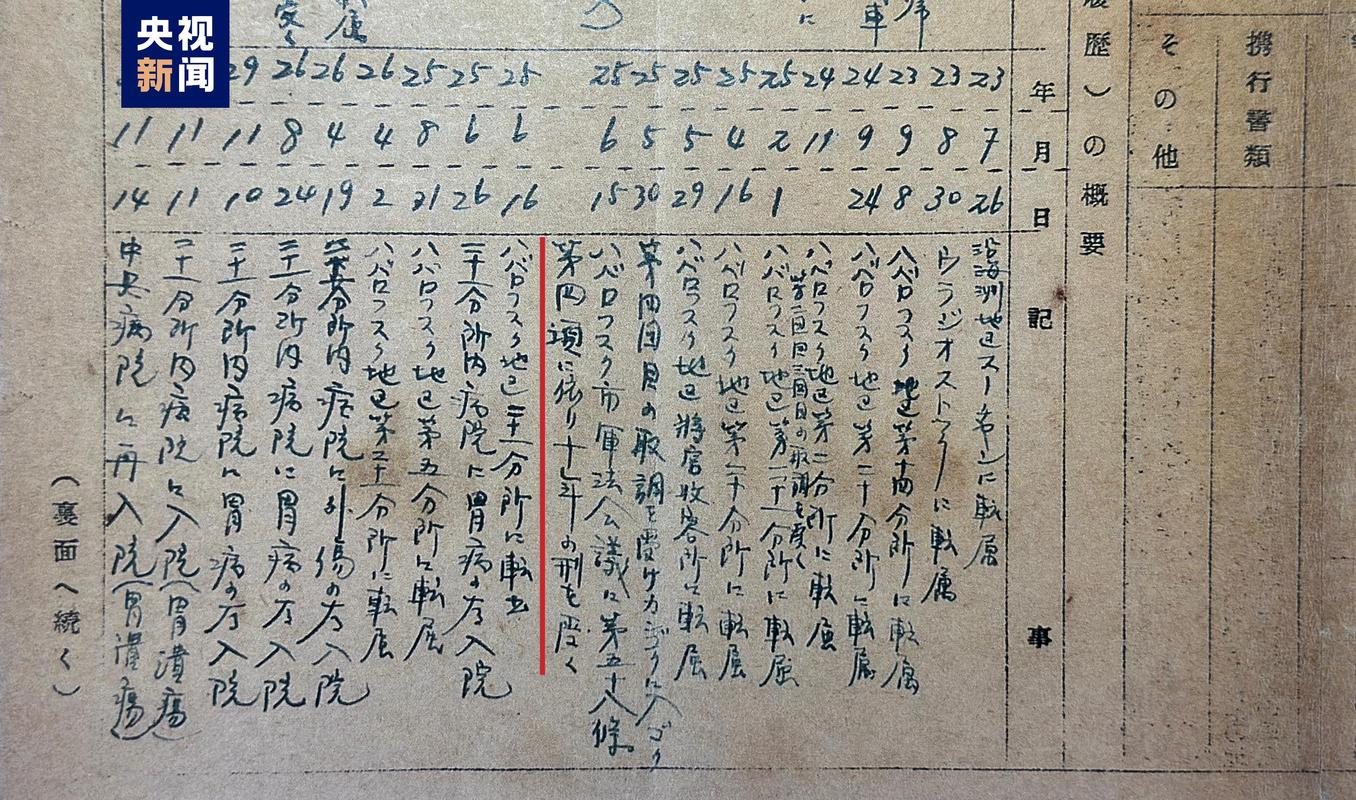 央视
新闻
携行書類
その他
歴)の概要
年
月
日
記
事
23 7 26 沿海洲地区スーチャンに転属
23 8 30 ウラジオストックに転属
23 9 8 ハバロフスク地区第十四分所に転属
24 9 24 ハバロフスク地区第二十分所に転属
24 11 ハバロフスク地区第二分所に転属
第二回目三回目の取調を受く
25 2 1 ハバロフスク地区第二十一分所に転属
25 4 16 ハバロフスク地区第二十分所に転属
25 5 29 ハバロフスク地区将官収容所に転属
25 5 30 第四回目の取調を受け
25 6 15 ハバロフスク市軍法会議に第五十八條
第四項に依り十年の刑を受く
25 6 16 ハバロフスク地区二十一分所に転出
25 6 26 二十一分所内病院に胃病の為入院
25 8 21 ハバロフスク地区第五分所に転属
26 4 2 ハバロフスク地区第二十一分所に転属
26 4 19 分所内病院に外傷の為入院
26 8 24 二十一分所内病院に胃病の為入院
29 11 10 二十一分所内病院に胃病の為入院
11 11 二十一分所内病院に入院(胃潰瘍)
11 14 中央病院に再入院(胃潰瘍)
(裏面へ続く)